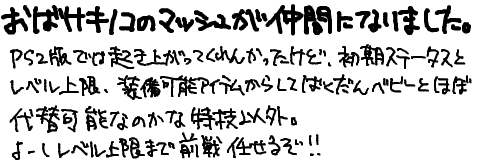 おばけキノコのマッシュが仲間になりました。
PS2版では起き上がってくれんかったけど、初期ステータスと
レベル上限、装備可能アイテムからしてばくだんベビーとほぼ
代替可能なのかな特技以外。
よーしレベル上限まで前戦任せるぞ!!